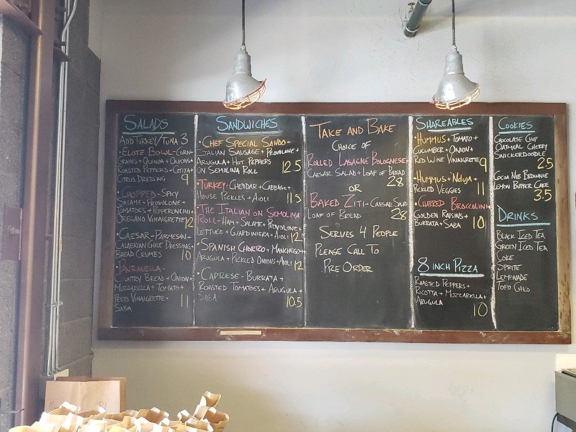 SALADS
ADD TURKEY/TUNA 3
GRAINS + QUINOA + ONIONS +
ROASTED PEPPERS + COTIJA +
CITRUS DRESSING 9
CHOPPED - SPICY
SALAMI + PROVOLONE +
TOMATOES + PEPPERONCINI +
OREGANO VINAIGRETTE 12
CAESAR - PARMESAN +
CALABRIAN CHILE DRESSING +
BREAD CRUMBS 10
PANZANELLA -
COUNTRY BREAD + ONION +
MOZZARELLA + TOMATO +
PESTO VINAIGRETTE + 11
SABA
SANDWICHES
CHEF SPECIAL SANDO -
ITALIAN SAUSAGE + PROVOLONE +
ARUGULA + HOT PEPPERS
ON SEMOLINA ROLL 12.5
TURKEY - CHEDDAR + CABBAGE +
HOUSE PICKLES + AIOLI 11.5
THE ITALIAN ON SEMOLINA
ROLL - HAM + SALAMI + PROVOLONE +
LETTUCE + GIARDINIERA + AIOLI 12
SPANISH CHORIZO - MANCHEGO +
ARUGULA + PICKLED ONIONS + AIOLI 12
CAPRESE - BURRATA +
ROASTED TOMATOES + ARUGULA +
SABA 10.5
TAKE AND BAKE
CHOICE OF
ROLLED LASAGNE BOLOGNESE
CAESAR SALAD + LOAF OF BREAD
28
OR
BAKED ZITI + CAESAR SALAD
LOAF OF BREAD 28
SERVES 4 PEOPLE
PLEASE CALL TO
PRE ORDER
SHAREABLES
HUMMUS + TOMATO +
CUCUMBER + ONION +
RED WINE VINAIGRETTE 9
HUMMUS + NDUJA +
PICKLED VEGGIES 11
CHARRED BROCCOLINI
GOLDEN RAISINS +
BURRATA + SABA 10
8 INCH PIZZA
ROASTED PEPPERS +
RICOTTA + MOZZARELLA +
ARUGULA 10
COOKIES
CHOCOLATE CHIP
OATMEAL CHERRY
SNICKERDOODLE
2.5
COCOA NIB BROWNIE
LEMON BUTTER CAKE
3.5
DRINKS
BLACK ICED TEA
GREEN ICED TEA
COKE
SPRITE
LEMONADE
TOPO CHICO